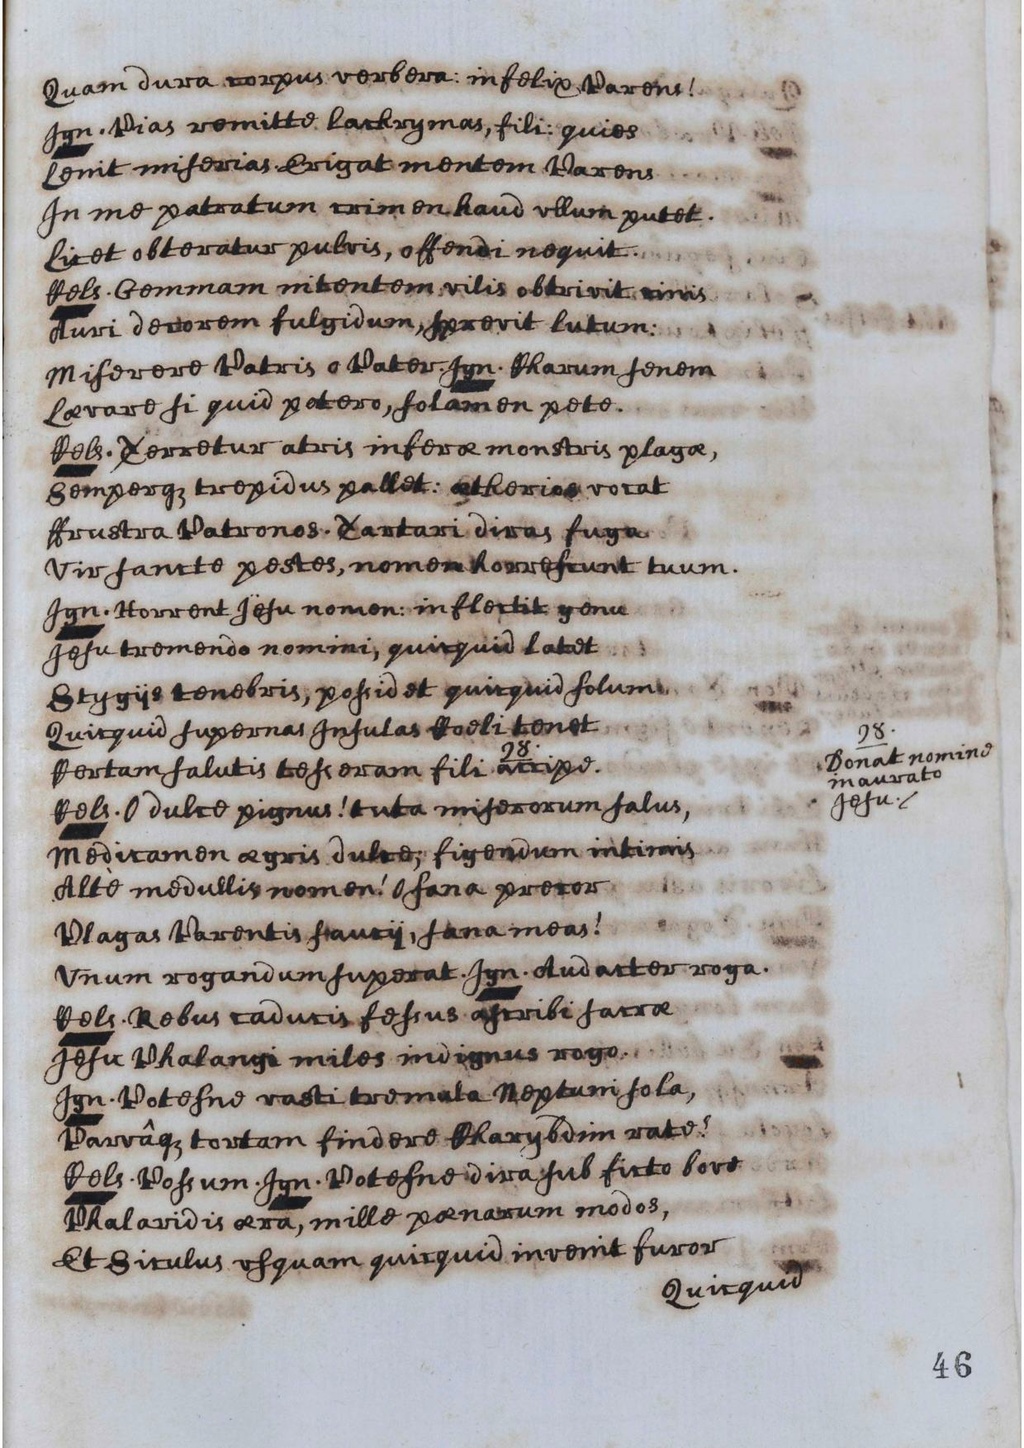 Quam dura corpus verbera: infelix Parens!
Ign. Pias remitte lachrymas, fili: quies
Lenit miserias. Erigat mentem Parens
In me patratum crimen haud vllum putet.
Licet obteratur pulvis, offendi nequit.
Cels. Gemmam nitentem vilis obtrivit cinis
Auri decorem fulgidum, sprevit lutum:
Miserere Patris o Pater. Ign. Charum senem
Lævare si quid potero, solamen pete.
Cels. Terretur atris inferæ monstris plagæ,
Semperq3 trepidus pallet: ætherios vocat
ffrustra Patronos. Tartari diras fuga
Vir sancte pestes, nomen horrescunt tuum.
Ign. Horrent Jesu nomen: inflectit genu
Jesu tremendo nomini, quicquid latet
Stygijs tenebris, possidet quicquid solum
Quicquid supernas Insulas Coeli tenet
Certam salutis tesseram fili 28. accipe.
28.
Donat nomine
inaurato
Jesu.
Cels. O dulce pignus! tuta miserorum salus,
Medicamen ægris dulce; figendum intimis
Altè medullis nomen! O sana precor
Plagas Parentis saucij, sana meas!
Vnum rogandum superat. Ign. Audacter roga.
Cels. Rebus caducis fessus ascribi sacræ
Jesu Phalangi miles indignus rogo.
Ign. Potesne vasti tremula Neptuni sola,
Parvâq3 tortam findere Charybdim rate?
Cels. Possum. Ign. Potesne dira sub ficto bove
Phalaridis æra, mille pœnarum modos,
Et Siculus vsquam quicquid invenit furor
Quicquid
46